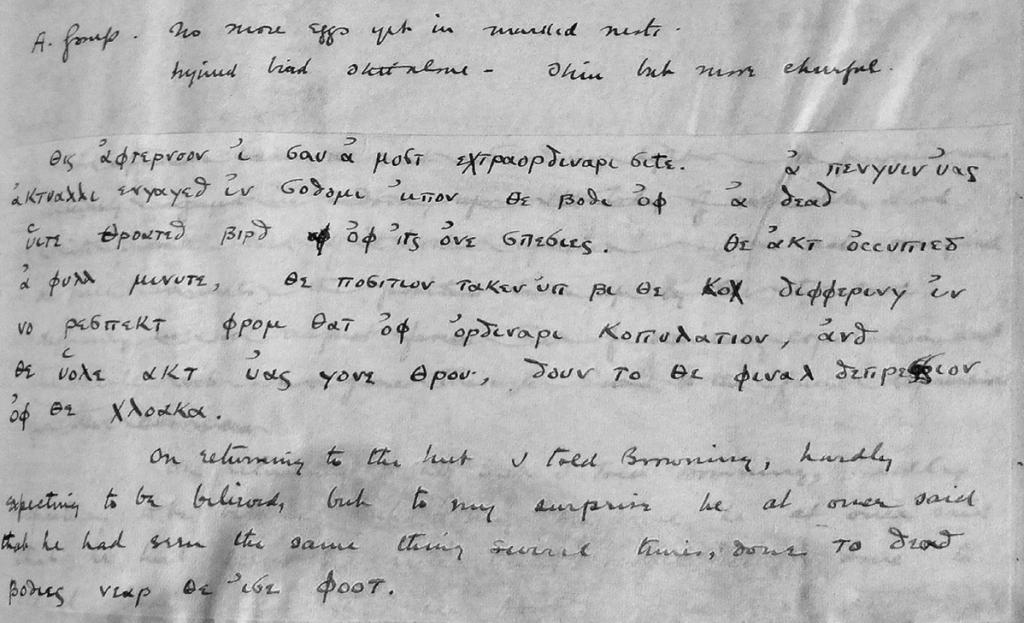 A. Group. No more eggs yet in marked nests.
Injured bird still alone - thin but more cheerful.
θις ἀφτερνοον ἰ σαυ ἀ μοστ εχτραορδιναρι σιτε. ἀ πενγυιν ὐας
ἀκτυαλλι ενγαγεδ ἰν σοδομι ὐπον θε βοδι ὀφ ἀ δεαδ
ὑιτε θροατεδ βιρδ ὀφ ἰτς ὀνε σπεσιες. θε ἀκτ ὀccυπιεδ
ἀ φυλλ μινυτε, θε ποσιτιον τακεν ὐπ βι θε κοχ διφφερινγ ἰν
νο ρεσπεκτ φρομ θατ ὀφ ὀρδιναρι κοπυλατιον, ἀνδ
θε ὑολε ακτ ὐας γονε θρου, δουν το θε φιναλ δεπρεσσιον
ὀφ θε χλοακα.
On returning to the hut I told Browning, hardly
expecting to be believed, but to my surprise he at once said
that he had seen the same thing several times, done το δεαδ
βοδιες νεαρ θε ἰσε φοοτ.